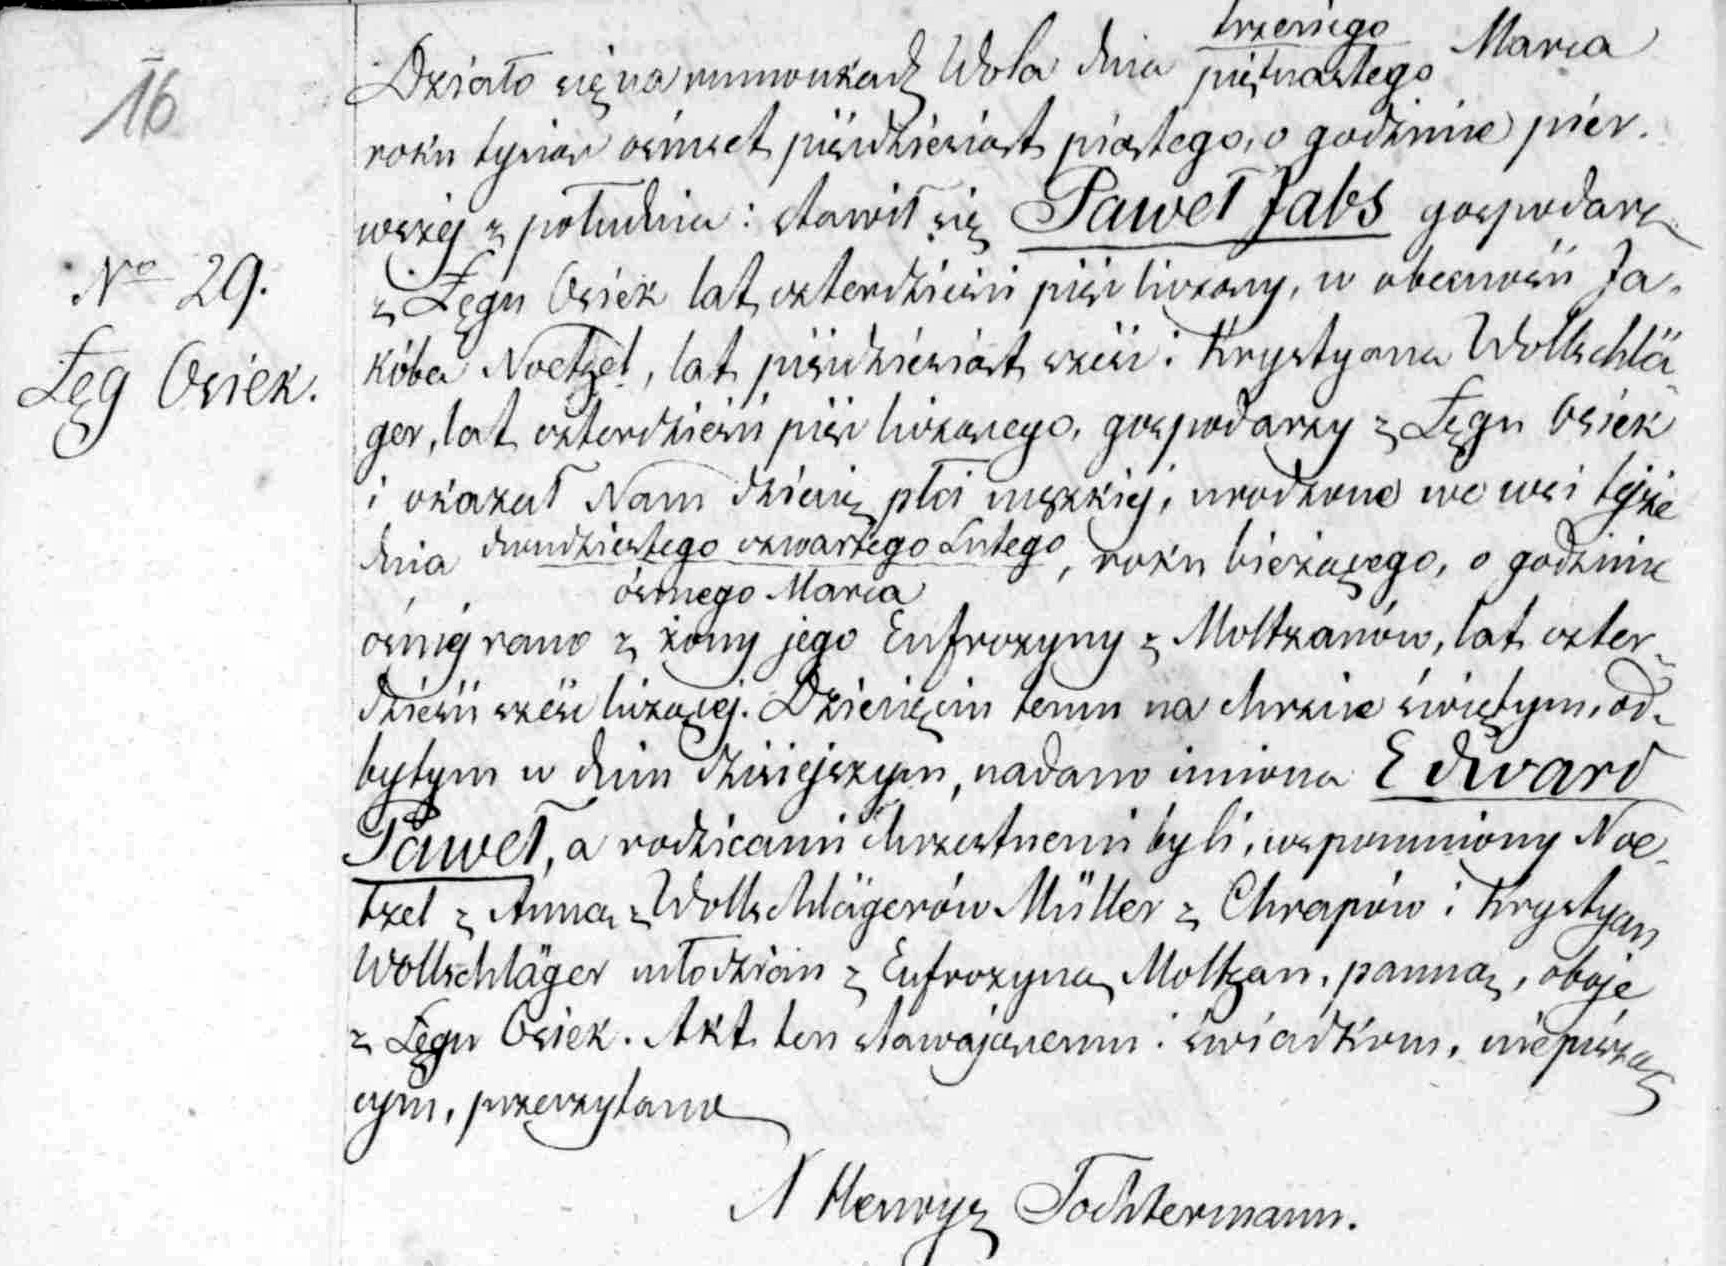 16
trzeciego
Działo się na rumunkach Wola dnia piętnastego Marca
roku tysiąc ośmset pięćdziesiąt piątego, o godzinie pier-
wszej z południa: stawił się Paweł Jabs gospodarz
No 29.
z Łęgu Osiek lat czterdzieści pięć liczący, w obecności Ja-
Łęg Osiek.
kóba Noetzel, lat pięćdziesiąt sześć i Krystyana Wollschlä-
ger, lat czterdzieści pięć liczącego, gospodarzy z Łęgu Osiek
i okazał Nam dziecię płci męzkiej, urodzone we wsi tejże
dnia dwudziestego czwartego Lutego, roku bieżącego, o godzinie
ósmego Marca
ósmej rano z żony jego Eufrozyny z Moltzanów, lat czter-
dzieści sześć liczącej. Dziecięciu temu na chrzcie świętym, od-
bytym w dniu dzisiejszym, nadano imiona Edward
Paweł, a rodzicami chrzestnemi byli, wspomniony Noe-
tzel z Anną z Wollschlägerów Müller z Chrapów i Krystyan
Wollschläger młodzian z Eufrozyną Moltzan, panną, oboje
z Łęgu Osiek. Akt ten stawającemu i świadkom, niepiszą-
cym, przeczytano
N Henryk Tochtermann.